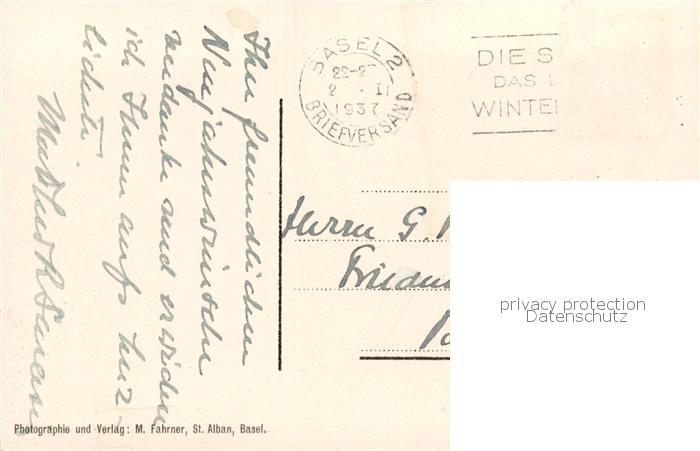 Ihre freundlichen
Neujahrswünsche
verdanke und erwidere
ich Ihnen aufs herz-
lichste.
BASEL 2
22-2
2 . II
1937
BRIEFVERSAND
DIE S
DAS
WINTE
Herrn G.
privacy protection
Datenschutz
Photographie und Verlag: M. Fahrner, St. Alban, Basel.